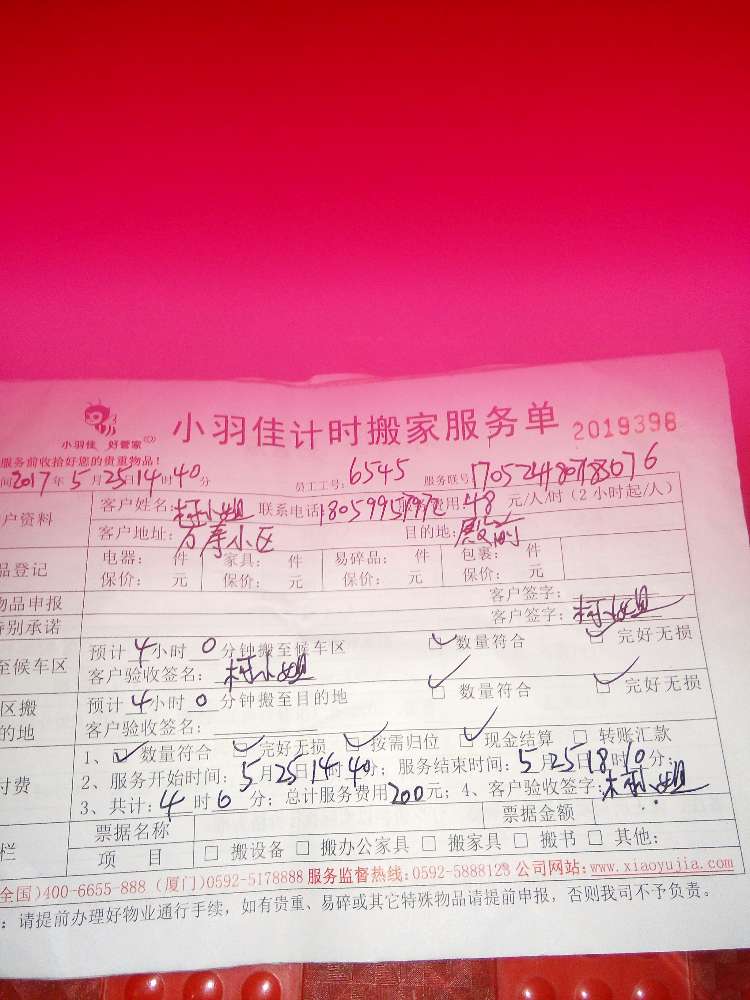 小羽佳 好管家
小羽佳计时搬家服务单 2019398
服务前收拾好您的贵重物品！
间2017年5月25日14时40分 员工工号：6545 服务联号：
户资料 客户姓名：柯小姐 联系电话： 用：48元/人/时（2小时起/人）
客户地址：万寿小区 目的地：殿前
品登记 电器： 件 家具： 件 易碎品： 件 包裹： 件
保价： 元 保价： 元 保价： 元 保价： 元
物品申报 客户签字：
特别承诺 客户签字：柯小姐
至候车区 预计4小时0分钟搬至候车区 ☑数量符合 ☑完好无损
客户验收签名：柯小姐
区搬 预计4小时0分钟搬至目的地 ☑数量符合 ☑完好无损
的地 客户验收签名：
付费 1、☑数量符合 ☑完好无损 ☑按需归位 ☑现金结算 □转账汇款
2、服务开始时间：5月25日14时40分；服务结束时间：5月25日18时10分；
3、共计：4时0分；总计服务费用200元；4、客户验收签字：柯小姐
栏 票据名称 票据金额
项 目 □搬设备 □搬办公家具 □搬家具 □搬书 □其他：
全国)400-6655-888 (厦门)0592-5178888 服务监督热线：0592-5888123 公司网站：www.xiaoyujia.com
：请提前办理好物业通行手续，如有贵重、易碎或其它特殊物品请提前申报，否则我司不予负责。